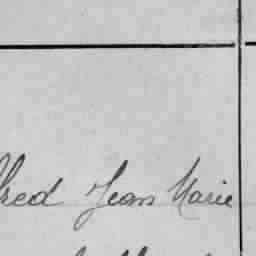 fred Jean Marie